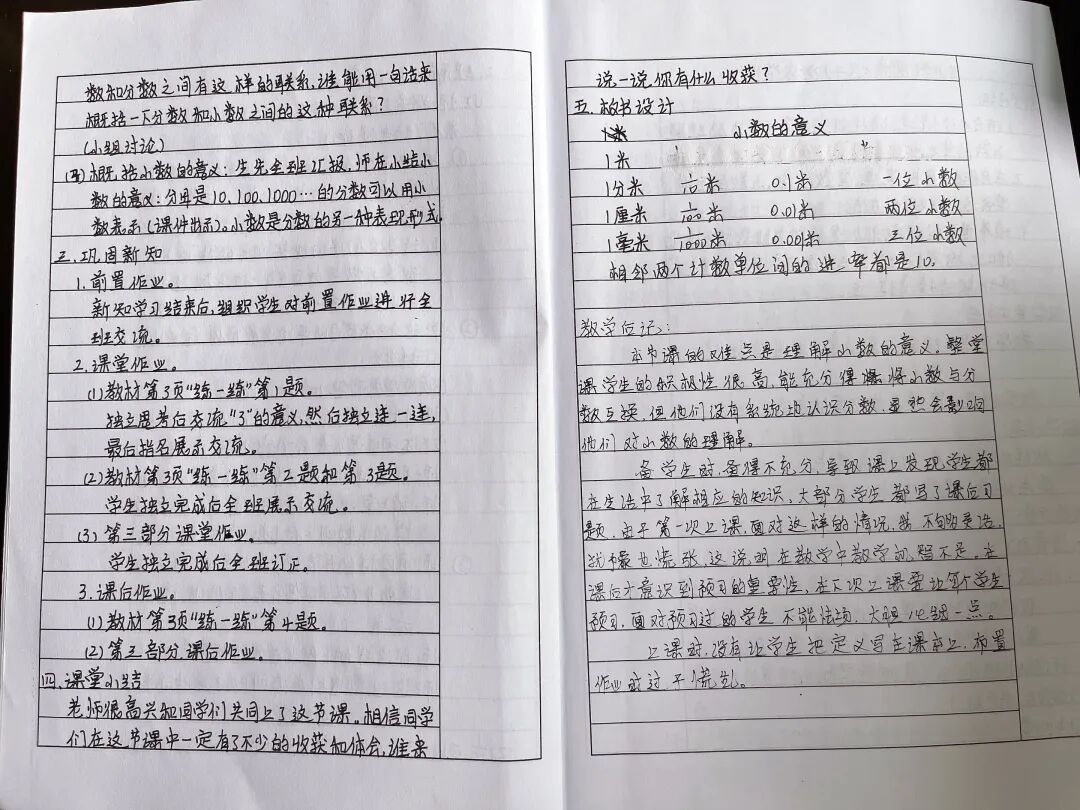 数和分数之间有这样的联系,谁能用一句话来
概括一下分数和小数之间的这种联系?
(小组讨论)
概括小数的意义:生先全班汇报,师在小结小
数的意义:分母是10,100,1000…的分数可以用小
数表示(课件出示)。小数是分数的另一种表现形式
三、巩固新知
1.前置作业。
新知学习结束后,组织学生对前置作业进行全
班交流。
2.课堂作业。
(1)教材第3页“练一练”第1题。
独立思考后交流“3”的意义,然后独立连一连,
最后指名展示交流。
(2)教材第3页“练一练”第2题和第3题。
学生独立完成后全班展示交流。
(3)第三部分课堂作业。
学生独立完成后全班订正。
3.课后作业。
(1)教材第3页“练一练”第4题。
(2)第三部分课后作业。
四、课堂小结
老师很高兴和同学们共同上了这节课。相信同学
们在这节课中一定有了不少的收获和体会,谁来
说一说你有什么收获?
五.板书设计
小数的意义
1米
1分米 1/10米 0.1米 一位小数
1厘米 1/100米 0.01米 两位小数
1毫米 1/1000米 0.001米 三位小数
相邻两个计数单位间的进率都是10.
教学后记:
本节课的难点是理解小数的意义。整堂
课学生的积极性很高,能充分得将小数与分
数互换,但他们没有系统地认识分数,虽然会影响
他们对小数的理解。
备学生时,备得不充分,导致课上发现,学生都
在生活中了解相应的知识,大部分学生都写了课后习
题,由于第一次上课,面对这样的情况,我不够灵活,
就也慌张,这说明在教学中教学机智不足。在
课后才意识到预习的重要性,在下次上课要让每个学生
预习,面对预习过的学生不能怯场,大胆化错一点。
上课时,没有让学生把定义写在课本上,布置
作业时过于慌乱。